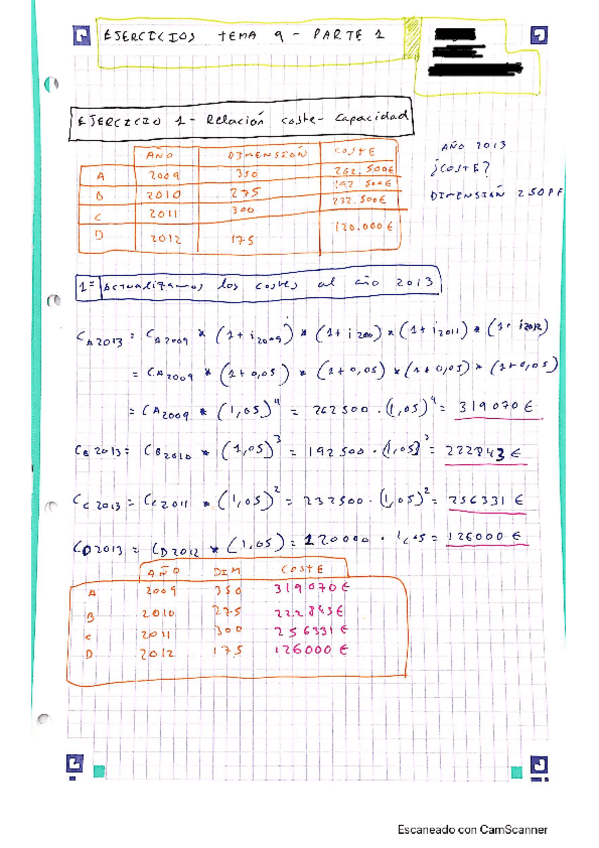 EJERCICIOS TEMA 9 - PARTE 1
EJERCICIO 1- Relación coste- capacidad
AÑO DIMENSIÓN COSTE
A 2009 350 262.500€
B 2010 275 192 500€
C 2011 300 232.500€
D 2012 175 120.000€
AÑO 2013
¿COSTE?
DIMENSIÓN 250 PF
1º Actualizamos los costes al año 2013
CA2013 = CA2009 * (1+i2009) * (1+i200) * (1+i2011) * (1+i2012)
= CA2009 * (1+0,05) * (1+0,05) * (1+0,05) * (1+0,05)
= CA2009 * (1,05)⁴ = 262500 · (1,05)⁴ = 319070€
CB2013 = CB2010 * (1,05)³ = 192500 · (1,05)³ = 222843€
CC2013 = CC2011 * (1,05)² = 232500 · (1,05)² = 256331€
CD2013 = CD2012 * (1,05) = 120000 · 1,05 = 126000€
AÑO DIM COSTE
A 2009 350 319070€
B 2010 275 222843€
C 2011 300 256331€
D 2012 175 126000€
Escaneado con CamScanner